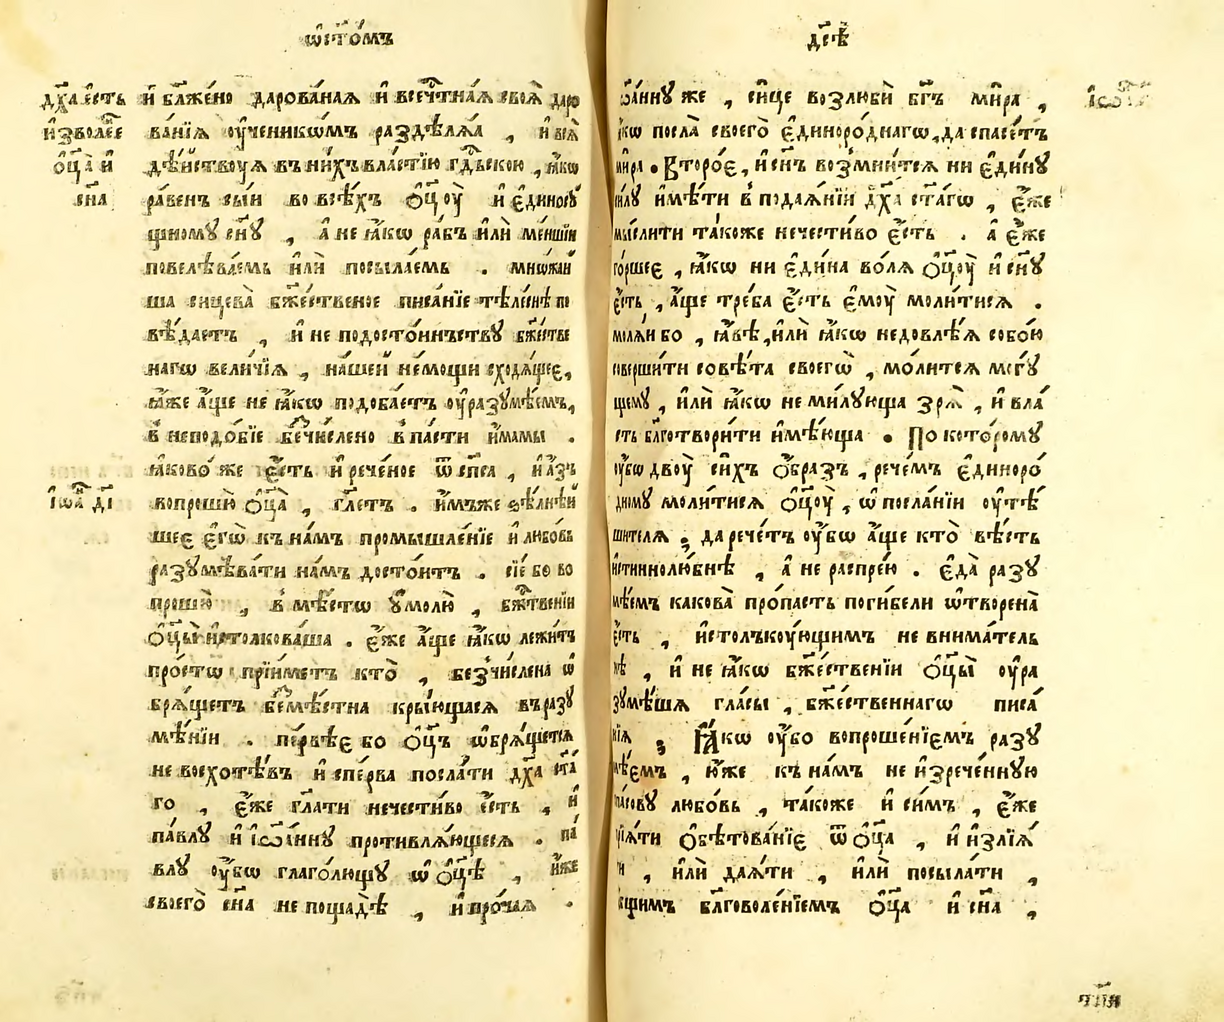 ѡ҆ ст҃о́мъ
дс҃ѣ
дх҃а є҆́сть
и҆зволе́є
ѻ҆ц҃а̀ и҆
сн҃а
и҆ бл҃же́но дарова́наѧ и҆ всечⷭ҇тнаѧ своѧ̀ даро
ва́нїѧ ᲂу҆ченикѡ́мъ раздѣлѧ́ѧ , и҆ всѧ̀
дѣ́йствᲂуѧ въ ни́хъ вла́стїю гдⷭ҇ьскою , ꙗ҆́кѡ
ра́венъ сы́и во всѣ́хъ ѻ҆ц҃ᲂу̀ и҆ є҆диносꙋ́
щномꙋ сн҃ꙋ , а҆ не ꙗ҆́кѡ ра́бъ и҆лѝ ме́ншїи
повелѣва́емь и҆лѝ посыла́емь . мнѡ́жаи
ша сицева̀ бж҃е́ственое писа́нїе тѣле́снѣ по
вѣ́даетъ , и҆ не подосто́инъствꙋ бж҃е́стве
нагѡ вели́чїѧ , на́шей не́мощи сходѧ́щеє,
ꙗ҆̀же а҆́ще не ꙗ҆́кѡ подоба́етъ ᲂу҆разꙋмѣ́емъ,
в неподо́бїе беꙁчи́слено впа́сти и҆́мамы .
ꙗ҆ково́ же є҆́сть и҆ рече́ное ѿ сп҃са , и҆ а҆́зъ
і҆ѡа҃ дı҃
вопрошꙋ̀ ѻ҆ц҃а̀ , гл҃етъ . и҆́мъже ѕѣлнѣ́й
шеє є҆гѡ̀ къ на́мъ промышле́нїе и҆ любо́вь
разꙋмѣва́ти на́мъ досто́итъ . сїе́ бо во
прошꙋ̀ , в мѣ́стѡ ꙋ҆молю̀ , бж҃е́твенїи
ѻ҆ц҃ы̀ и҆столкова́ша . є҆́же а҆́ще ꙗ҆́кѡ лежи́тъ
про́стѡ прїи́метъ кто̀ , безчи́слена ѡ҆
брѧ́щетъ беꙁмѣ́стна кры́ющаѧсѧ в разꙋ
мѣ́нїи . пе́рвѣє бо ѻ҆ц҃ъ ѡ҆брѧ́щетсѧ
не восхотѣ́въ и҆ спе́рва посла́ти дх҃а ст҃а́
го , є҆́же гл҃ати нечести́во є҆́сть , и҆
па́влꙋ и҆ і҆ѡа́ннꙋ противлѧ́ющесѧ . па́
влꙋ ᲂу҆́бѡ глаго́лющꙋ ѡ҆ ѻ҆ц҃ѣ̀ , и҆́же
своего̀ сн҃а не пощадѣ̀ , и҆ про́чаѧ .
ѡа́ннꙋ же , си́це возлюбѝ бг҃ъ ми́ра ,
ꙗкѡ посла̀ своего̀ є҆диноро́днагѡ, да спасе́тъ
мира . Второ́є , и҆ сн҃ъ возмни́тсѧ ни є҆ди́нꙋ
силꙋ и҆мѣ́ти в подаѧ́нїи дх҃а ст҃а́гѡ , є҆́же
мы́слити та́коже нечести́во є҆́сть . а҆ є҆́же
го́ршеє , ꙗ҆́кѡ ни є҆ди́на во́лѧ ѻ҆ц҃ᲂу̀ и҆ сн҃ꙋ
є҆́сть , а҆́ще тре́ба є҆́сть є҆мᲂу̀ моли́тисѧ .
молѧ́и бо , ꙗ҆́вѣ , и҆лѝ ꙗ҆́кѡ недовлѣ́ѧ собо́ю
соверши́ти совѣ́та своегѡ̀ , мо́литсѧ могꙋ́
щемꙋ , и҆лѝ ꙗ҆́кѡ не ми́лꙋюща зрѧ̀ , и҆ вла́
сть бл҃готвори́ти и҆мѣ́юща . По кото́ромꙋ
ᲂу҆́бѡ двᲂу̀ си́хъ ѻ҆́бразъ , рече́мъ є҆диноро́
дномꙋ моли́тисѧ ѻ҆ц҃ᲂу̀ , ѡ҆ посла́нїи ᲂу҆тѣ́
шителѧ ; да рече́тъ ᲂу҆́бѡ а҆́ще кто̀ вѣ́сть
и҆стиннолю́бнѣ , а҆ не распре́ю . є҆да̀ разꙋ
мѣ́емъ какова̀ про́пасть поги́бели ѿтворена̀
є҆́сть , и҆столъкᲂу́ющимъ не внима́тель
нѣ , и҆ не ꙗ҆́кѡ бж҃е́ственїи ѻ҆ц҃ы̀ ᲂу҆ра
зꙋмѣ́шѧ гла́сы , бж҃е́ственнагѡ писа́
нїѧ ; Ꙗ҆́кѡ ᲂу҆́бо вопроше́нїемъ разꙋ
мѣ́емъ , ю҆́же къ на́мъ не и҆зрече́ннꙋю
спа́совꙋ любо́вь , та́коже и҆ си́мъ , є҆́же
прїѧ́ти ѻ҆бѣтова́нїє ѿ ѻ҆ц҃а̀ , и҆ и҆злїѧ́
ти , и҆лѝ даѧ́ти , и҆лѝ посыла́ти ,
ѻ҆́бщимъ бл҃говоле́нїемъ ѻ҆ц҃а̀ и҆ сн҃а ,